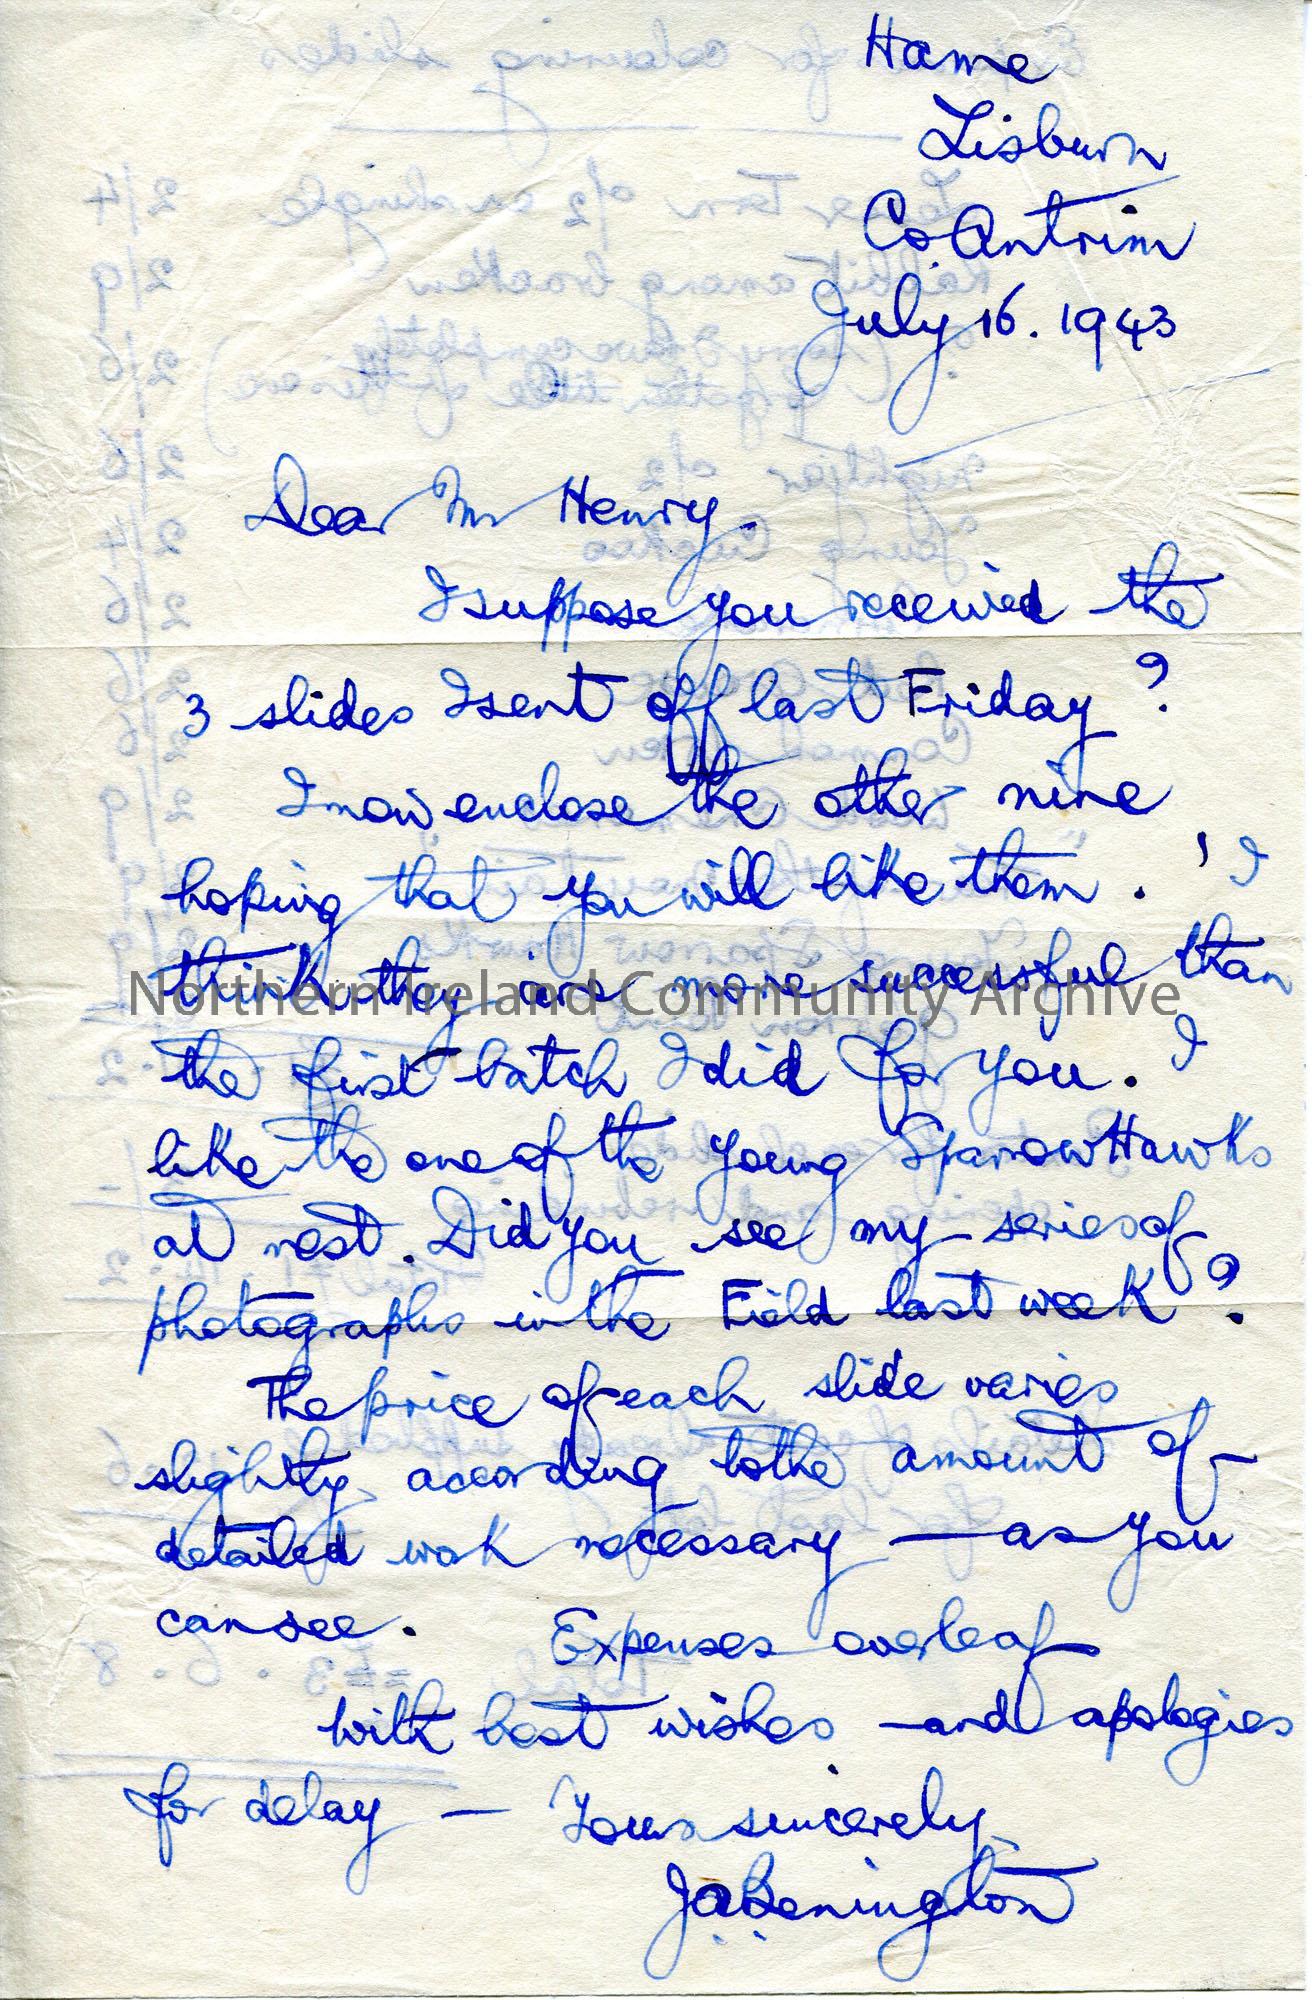 Hame
Lisburn
Co. Antrim
July 16. 1943
Dear Mr Henry.
I suppose you received the
3 slides I sent off last Friday?
I now enclose the other nine
hoping that you will like them. I
think they are more successful than
Northern Ireland Community Archive
the first batch I did for you. I
like the one of the young Sparrow Hawks
at nest. Did you see my series of
photographs in the Field last week?
The price of each slide varies
slightly according to the amount of
detailed work necessary — as you
can see. Expenses overleaf
With best wishes and apologies
for delay — Yours sincerely
J.A. Benington